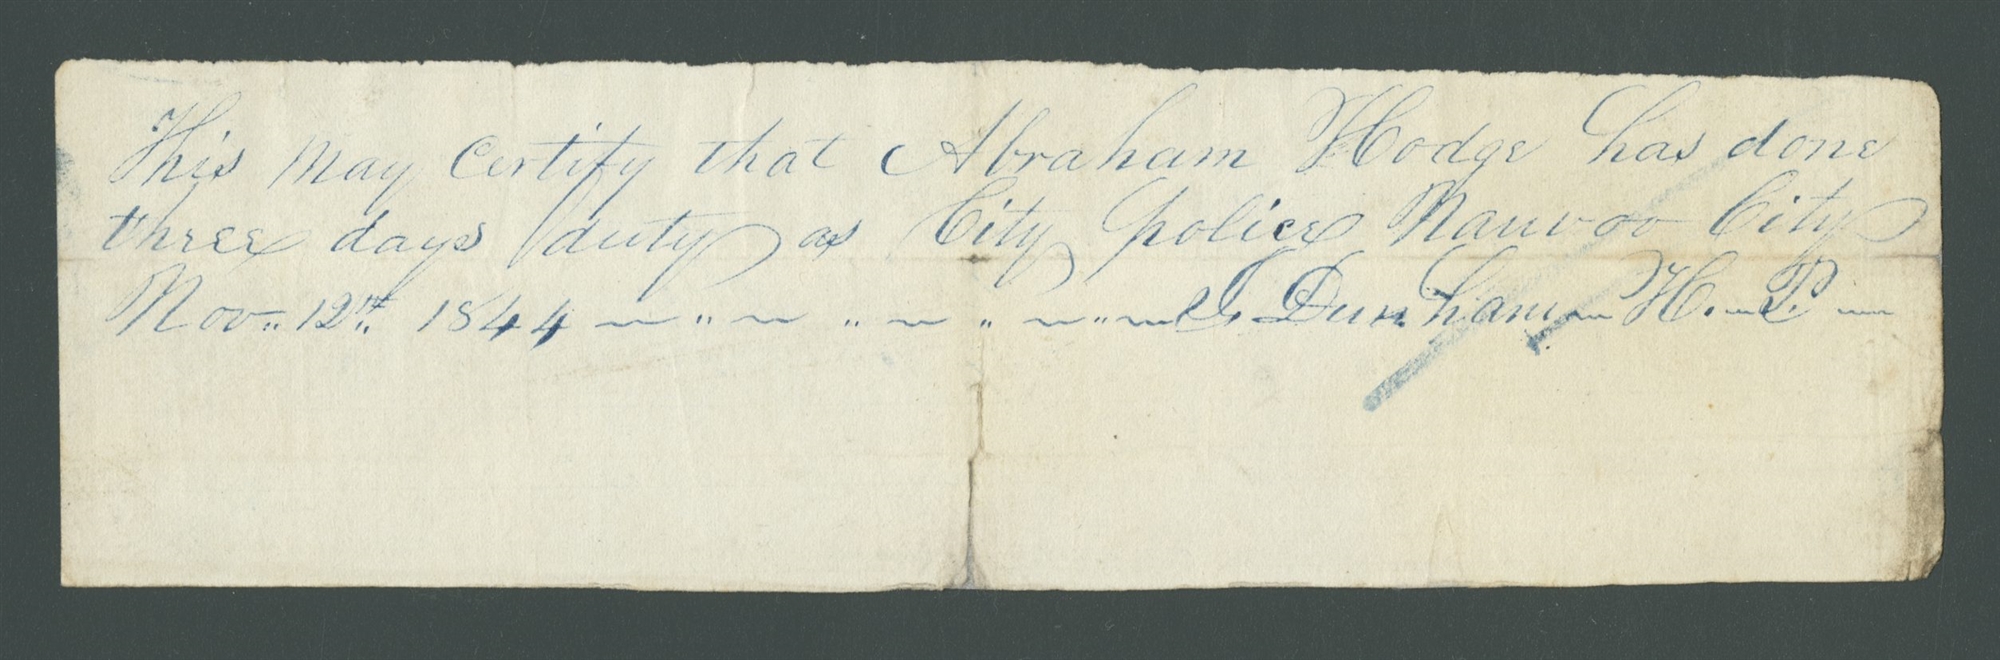 This May Certify that Abraham Hodge has done
three days duty as City police Nauvoo City
Nov. 12th. 1844 J. Dunham H. P.